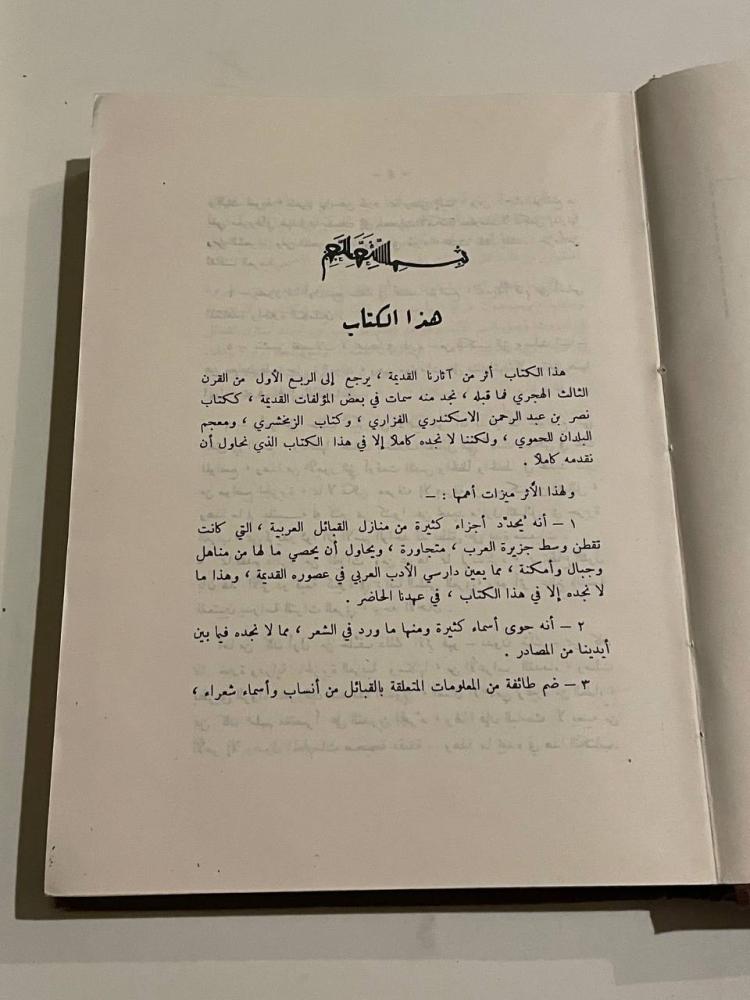 بسم الله الرحمن الرحيم
هذا الكتاب
هذا الكتاب أثر من آثارنا القديمة ، يرجع إلى الربع الأول من القرن
الثالث الهجري فما قبله ، نجد منه سمات في بعض المؤلفات القديمة ، ككتاب
نصر بن عبد الرحمن الاسكندري الفزاري ، وكتاب الزمخشري ، ومعجم
البلدان للحموي ، ولكننا لا نجده كاملا إلا في هذا الكتاب الذي نحاول أن
نقدمه كاملا .
ولهذا الأثر ميزات أهمها : –
١ – أنه يُحدّد أجزاء كثيرة من منازل القبائل العربية ، التي كانت
تقطن وسط جزيرة العرب ، متجاورة ، ويحاول أن يحصي ما لها من مناهل
وجبال وأمكنة ، مما يعين دارسي الأدب العربي في عصوره القديمة ، وهذا ما
لا نجده إلا في هذا الكتاب ، في عهدنا الحاضر .
٢ – أنه حوى أسماء كثيرة ومنها ما ورد في الشعر ، مما لا نجده فيما بين
أيدينا من المصادر .
٣ – ضم طائفة من المعلومات المتعلقة بالقبائل من أنساب وأسماء شعراء ،